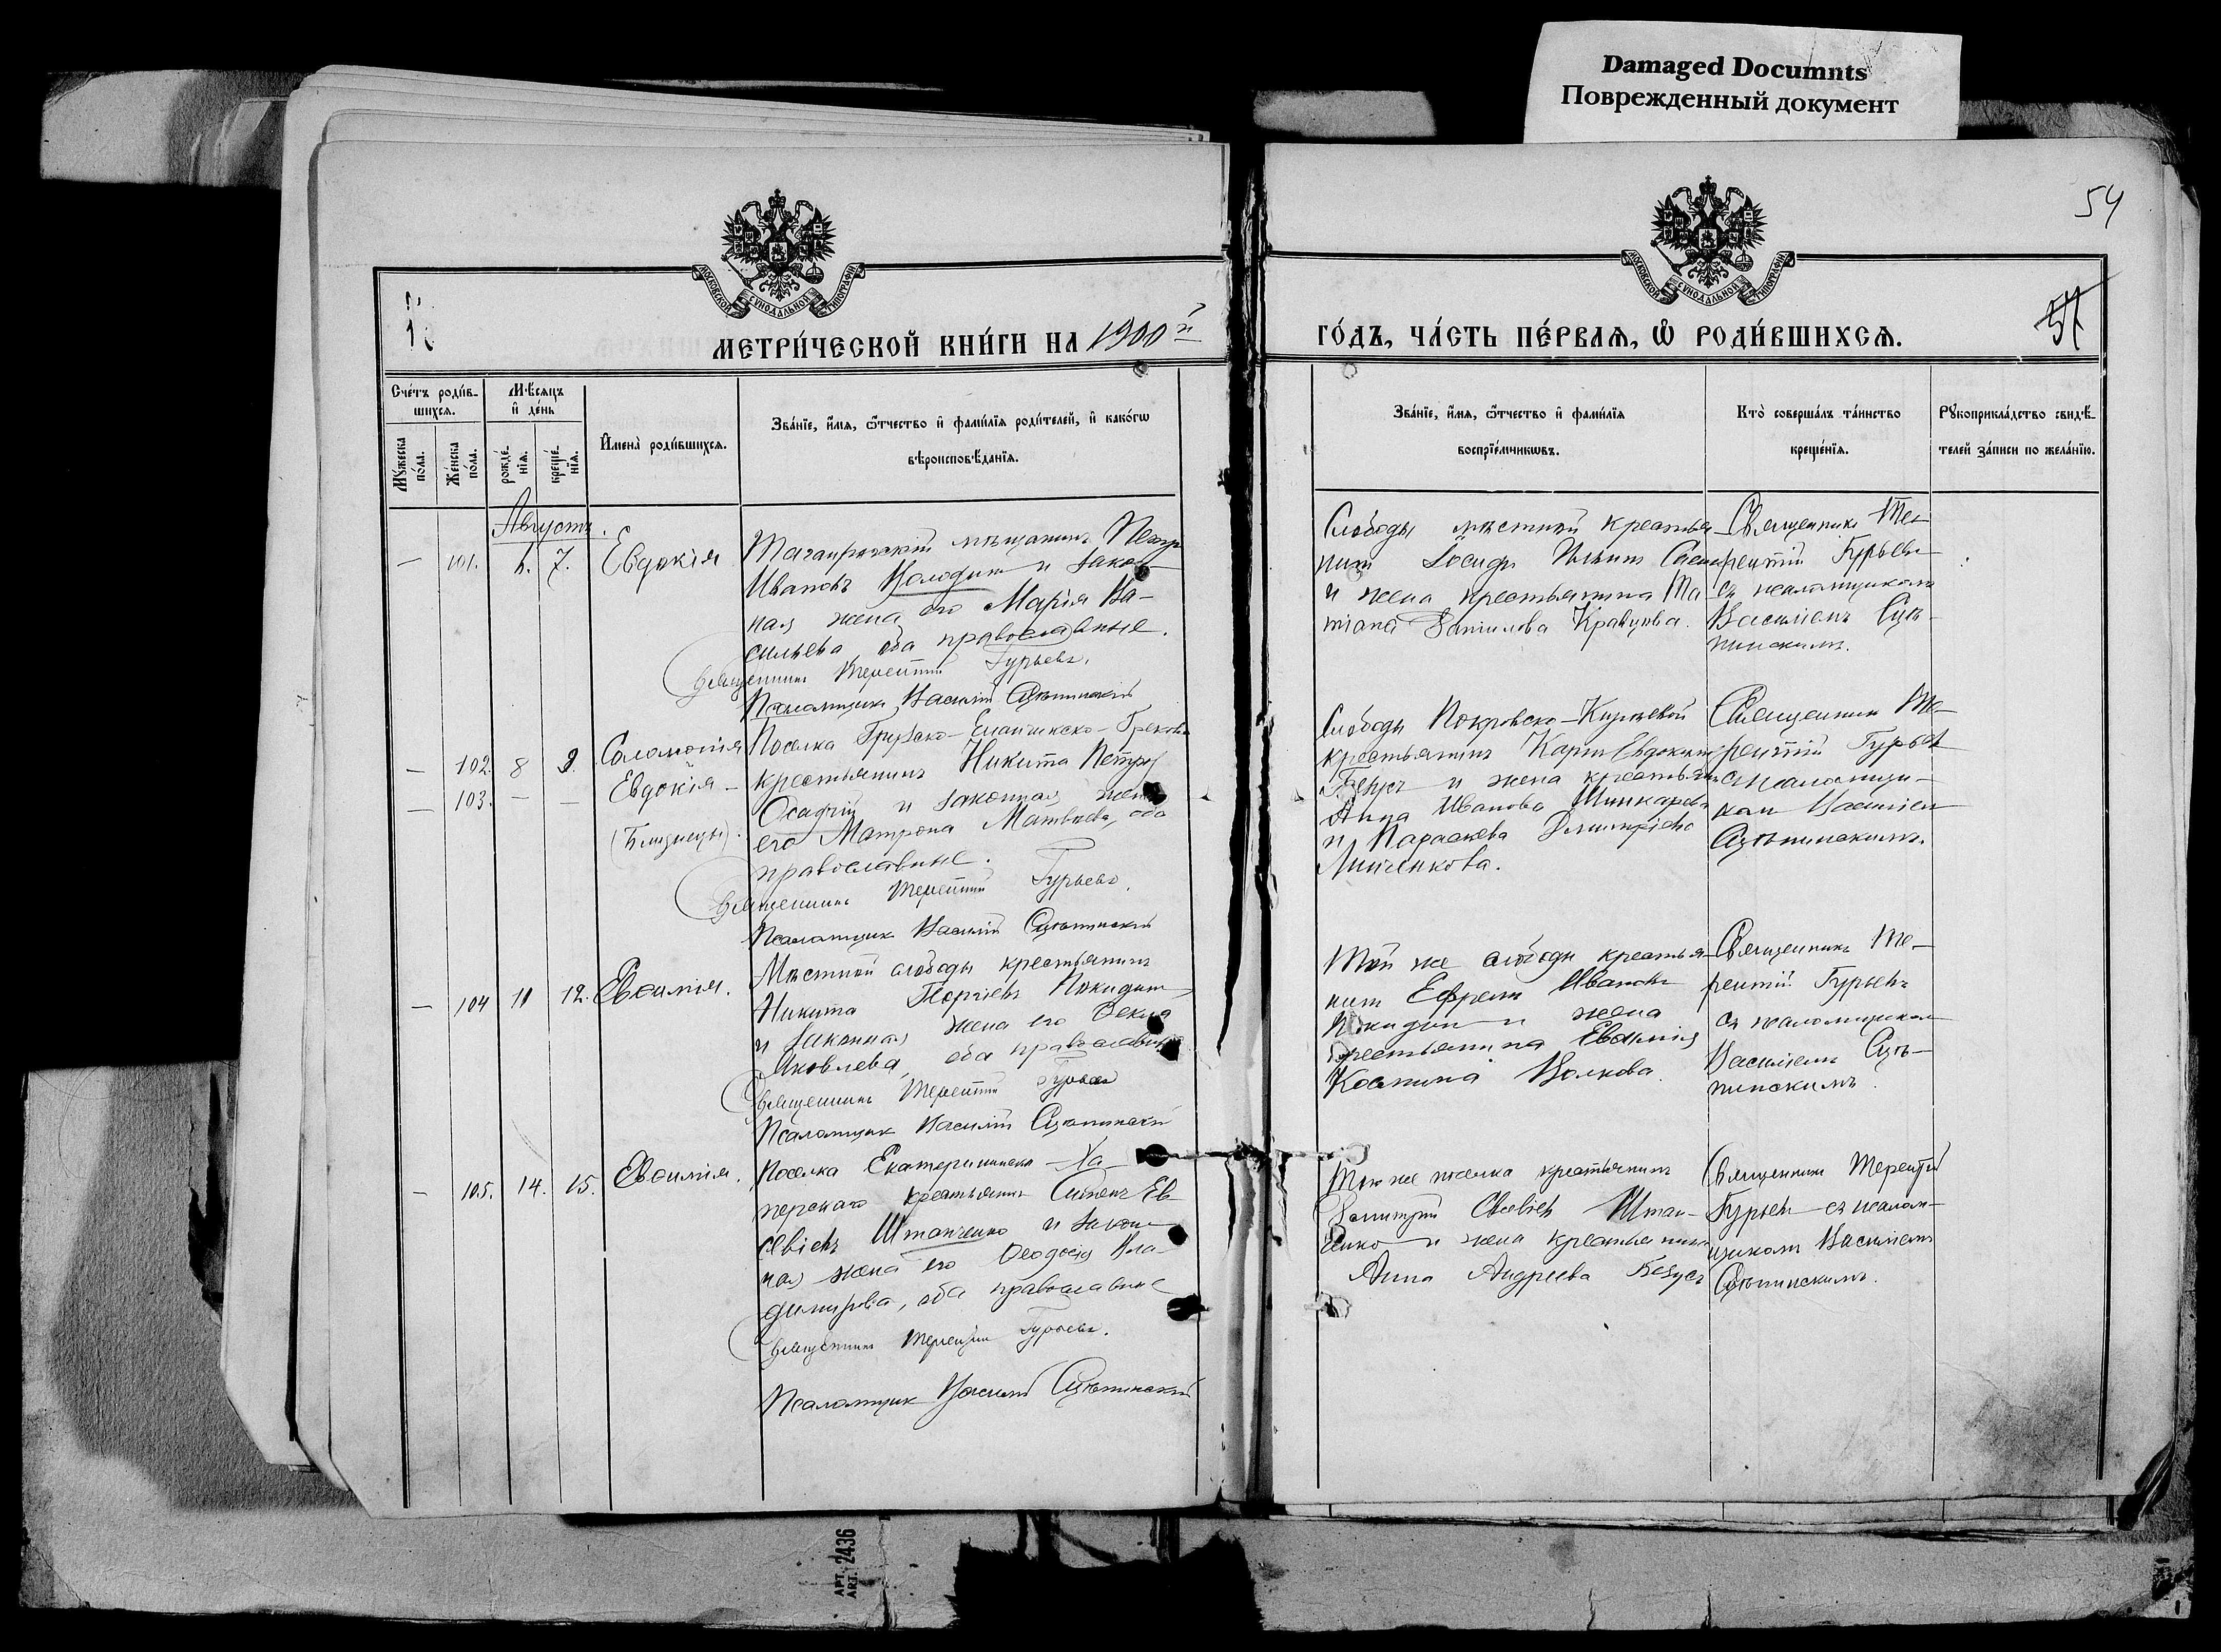 Damaged Documnts
Поврежденный документ
54
МОСКОВСКОЙ СУНОДАЛЬНОЙ ТИПОГРАФІИ
МОСКОВСКОЙ СУНОДАЛЬНОЙ ТИПОГРАФІИ
МЕТРИ́ЧЕСКОЙ КНИ́ГИ НА 1900й
ГО́ДЪ, ЧА́СТЬ ПЕ́РВАЯ, Ѡ РОДИ́ВШИХСЯ.
Сче́тъ роди́вшихся.
Му́жеска по́ла.
Же́нска по́ла.
Мѣ́сяцъ и де́нь
рожде́нїя.
креще́нїя.
Имена̀ роди́вшихся.
Зва́нїе, и́мя, ѻ҆́тчество и фами́лїя роди́телей, и како́гѡ
вѣроисповѣ́данїя.
Зва́нїе, и́мя, ѻ҆́тчество и фами́лїя
воспрїе́мникѡвъ.
Кто̀ соверша́лъ та́инство
креще́нїя.
Рꙋкоприкла́дство свидѣ́-
телей за́писи по жела́нїю.
Августъ.
— 101. 6. 7. Евдокія
Таганрогскій мѣщанинъ Петръ
Ивановъ Колодин и закон
ная жена его Марія Ва-
сильева, оба православные.
Священникъ Терентій Гурьевъ.
Псаломщикъ Василій
Слободы мѣстной крестья
нин Іосифъ
и жена крестьянина Та
тіана Данилова Кравцова.
Священникъ Те-
рентій Гурьевъ
съ псаломщикомъ
Василіемъ
— 102. 8 9. Соломонія
— 103. — — Евдокія
(Близнецы).
Поселка Грузско-Еланчикско-Грекова
крестьянинъ Никита Петровъ
и законная жена
его Матрона Матвѣева, оба
православные.
Священникъ Терентій Гурьевъ.
Псаломщикъ Василій
Слободы Покровско-Киреевой
крестьянинъ Карпъ Евдокимовъ
и жена крестьян
Анна Иванова Шинкарева
и Параскева Димитріева
Линченкова.
Священникъ Те-
рентій Гурьевъ
съ псаломщи-
ком Василіем
— 104 11 12. Евѳимія.
Мѣстной слободы крестьянинъ
Никита Георгіевъ Покидин
и законная жена его Ѳекла
Яковлева, оба православные
Священникъ Терентій Гурьевъ
Псаломщикъ Василій
Той же слободы крестья-
нин Ефремъ Ивановъ
Покидин и жена
крестьянина Евѳимія
Космина Волкова.
Священникъ Те-
рентій Гурьевъ
съ псаломщиком
Василіемъ
— 105. 14. 15. Евѳимія.
Поселка Екатериновско-Ха-
перскаго крестьянинъ Симеонъ Ев-
севіевъ Штанченко и закон-
ная жена его Ѳеодосія Вла-
димірова, оба православные
Священникъ Терентій Гурьевъ.
Псаломщикъ Василій
Того же поселка крестьянинъ
Димитрій Евсевіевъ Штан-
ченко и жена крестьянина
Анна Андреева
Священникъ Терентій
Гурьевъ съ псалом-
щикомъ Василіемъ
АРТ. 2436
ART.